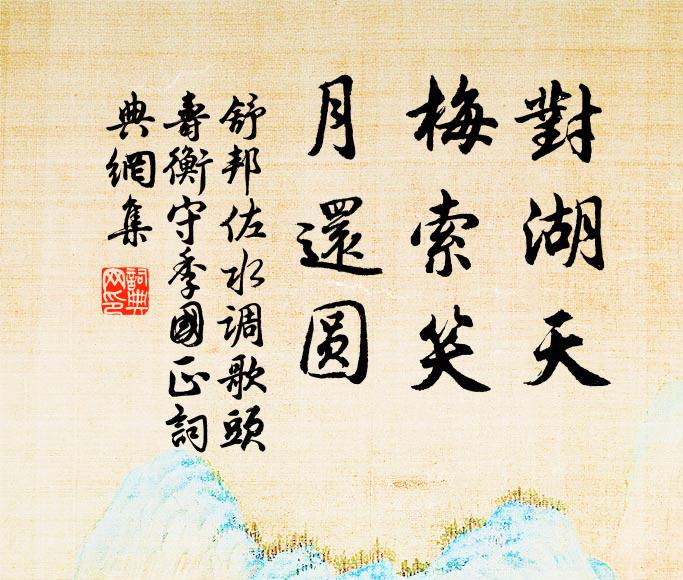 對湖天
梅索笑
月還圆
舒邦佐水调歌頭
壽衡守季國正詞
典網集
詞典
网印